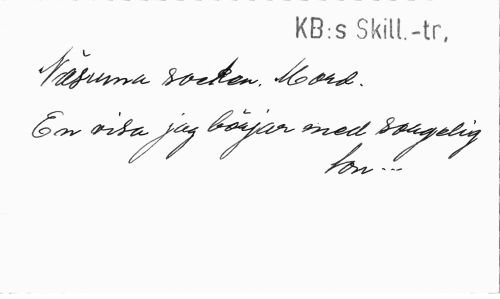 KB:s Skill.-tr,
Näsum socken. Mord.
En visa jag börjar med sorgelig
ton...